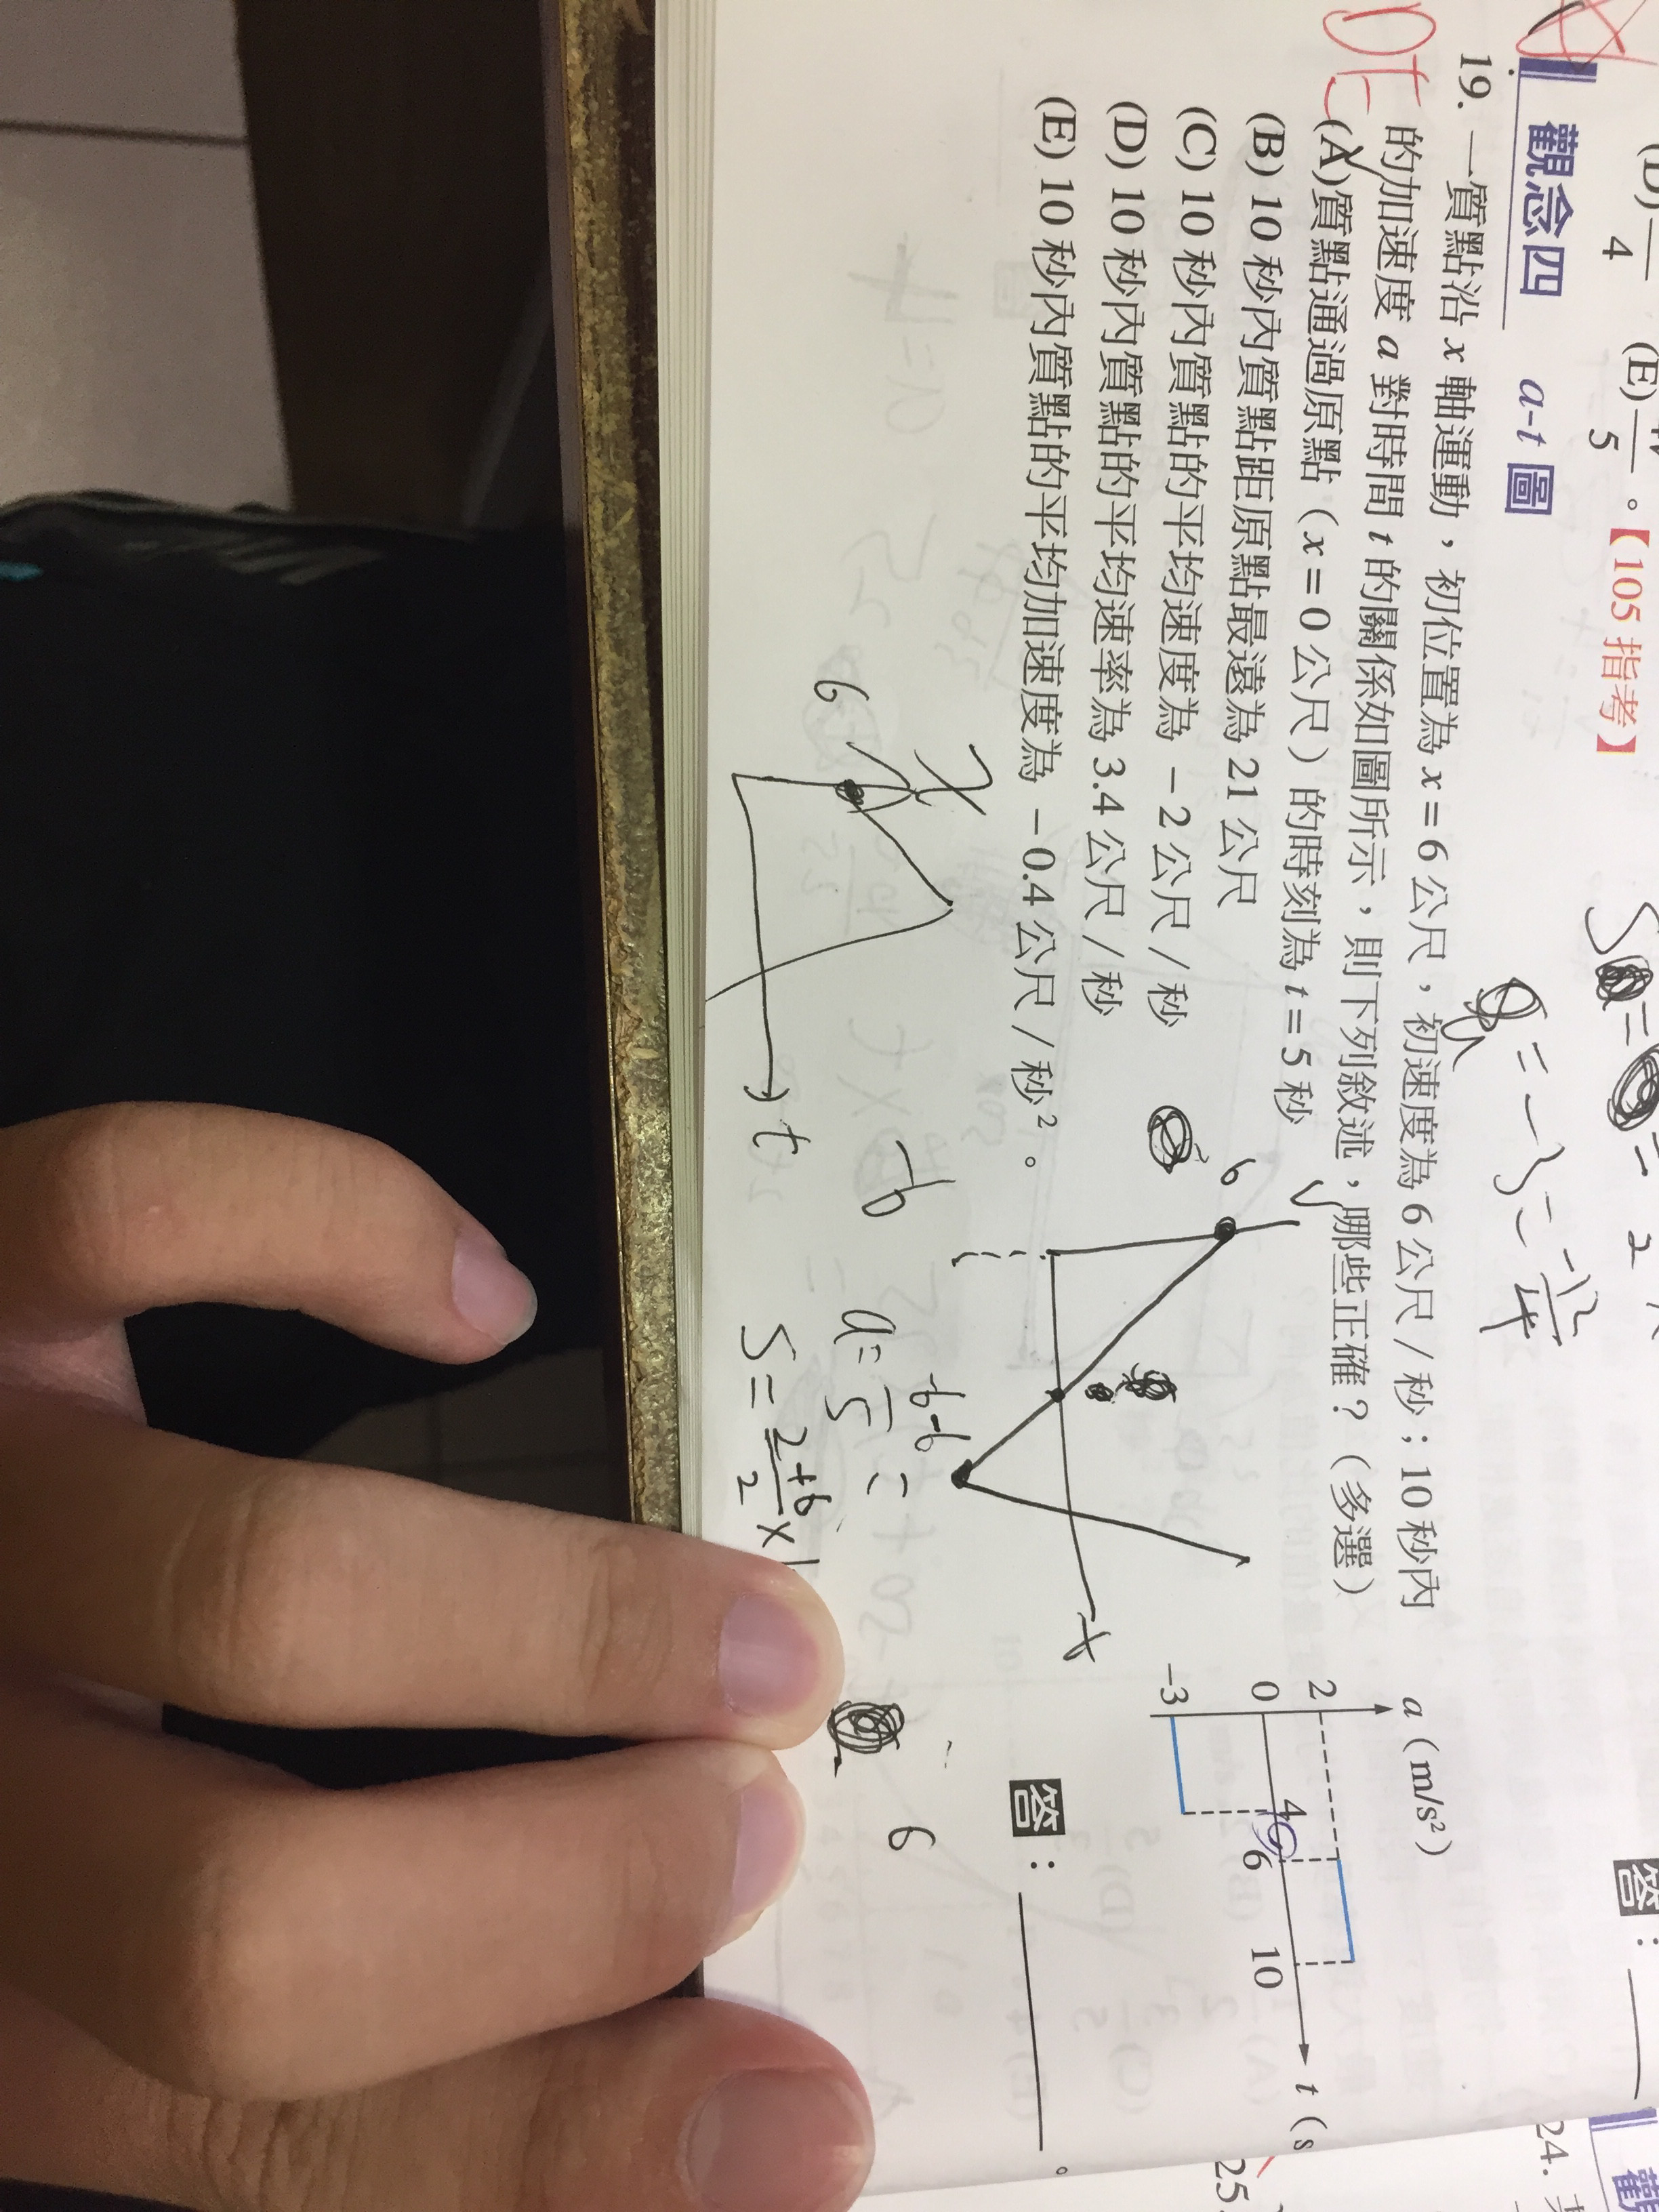 (D) 4 (E) 5 。【105 指考】
答：
觀念四 a-t 圖
19. 一質點沿 x 軸運動，初位置為 x = 6 公尺，初速度為 6 公尺 / 秒；10 秒內
的加速度 a 對時間 t 的關係如圖所示，則下列敘述，哪些正確？（多選）
DE
(A) 質點通過原點（x = 0 公尺）的時刻為 t = 5 秒
(B) 10 秒內質點距原點最遠為 21 公尺
(C) 10 秒內質點的平均速度為 －2 公尺 / 秒
(D) 10 秒內質點的平均速率為 3.4 公尺 / 秒
(E) 10 秒內質點的平均加速度為 －0.4 公尺 / 秒²。
a（m/s²）
2
0
-3
4
6
10
t（s
答：
。
V
6
t
x
6
t
-6
a=
S=
6
24.
25.